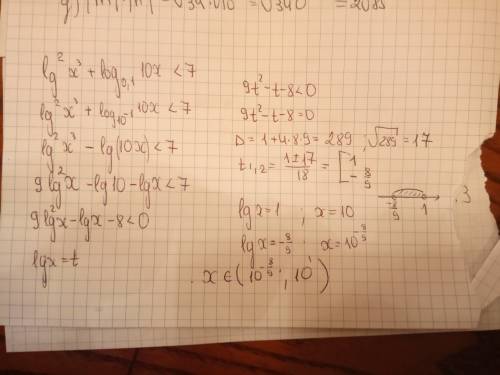 lg² x³ + log₀,₁ 10x < 7
lg² x³ + log₁₀⁻¹ 10x < 7
lg² x³ - lg(10x) < 7
9 lg² x - lg10 - lgx < 7
9 lg² x - lgx - 8 < 0
lgx = t
9t² - t - 8 < 0
9t² - t - 8 = 0
D = 1 + 4·8·9 = 289 , √289 = 17
t₁,₂ = (1±17)/18 = [ 1
- 8/9
-8/9 1
lg x = 1 ; x = 10
lg x = -8/9 x = 10^(-8/9)
x ∈ (10^(-8/9) ; 10¹)